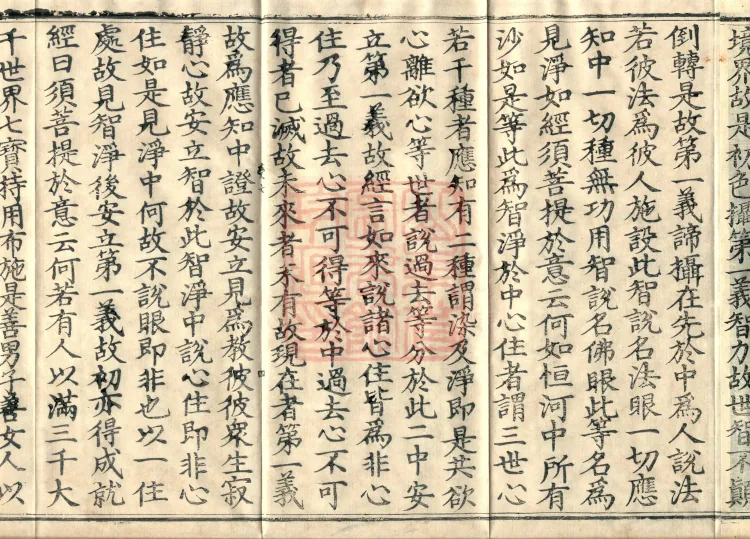 境界故是初色攝第一義智力故世智不顛
倒轉是故第一義諦攝在先於中為人說法
若彼法為彼人施設此智說名法眼一切應
知中一切種無功用智說名佛眼此等名為
見淨如經須菩提於意云何如恒河中所有
沙如是等此為智淨於中心住者謂三世心
若干種者應知有二種謂染及淨即是共欲
心離欲心等世者說過去等分於此二中安
立第一義故經言如來說諸心住皆為非心
住乃至過去心不可得等於中過去心不可
得者已滅故未來者未有故現在者第一義
故為應知中證故安立見為教彼彼眾生寂
靜心故安立智於此智淨中說心住即非心
住如是見淨中何故不說眼即非也以一住
處故見智淨後安立第一義故初亦得成就
經曰須菩提於意云何若有人以滿三千大
千世界七寶持用布施是善男子善女人以